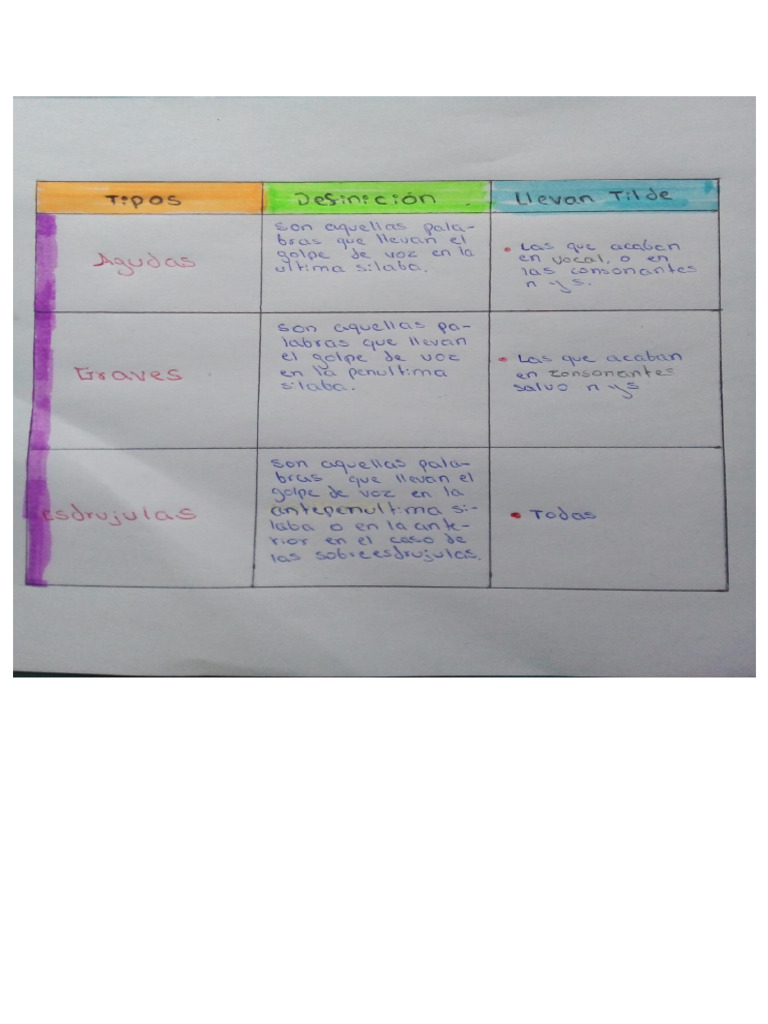 Tipos
Definición
Llevan Tilde
Agudas
son aquellas pala-
bras que llevan el
golpe de voz en la
ultima silaba.
• Las que acaban
en vocal, o en
las consonantes
n y s.
Graves
son aquellas pa-
labras que llevan
el golpe de voz
en la penultima
silaba.
• Las que acaban
en consonantes
salvo n y s
esdrujulas
son aquellas pala-
bras que llevan el
golpe de voz en la
antepenultima si-
laba o en la ante-
rior en el caso de
las sobreesdrujulas.
• Todas